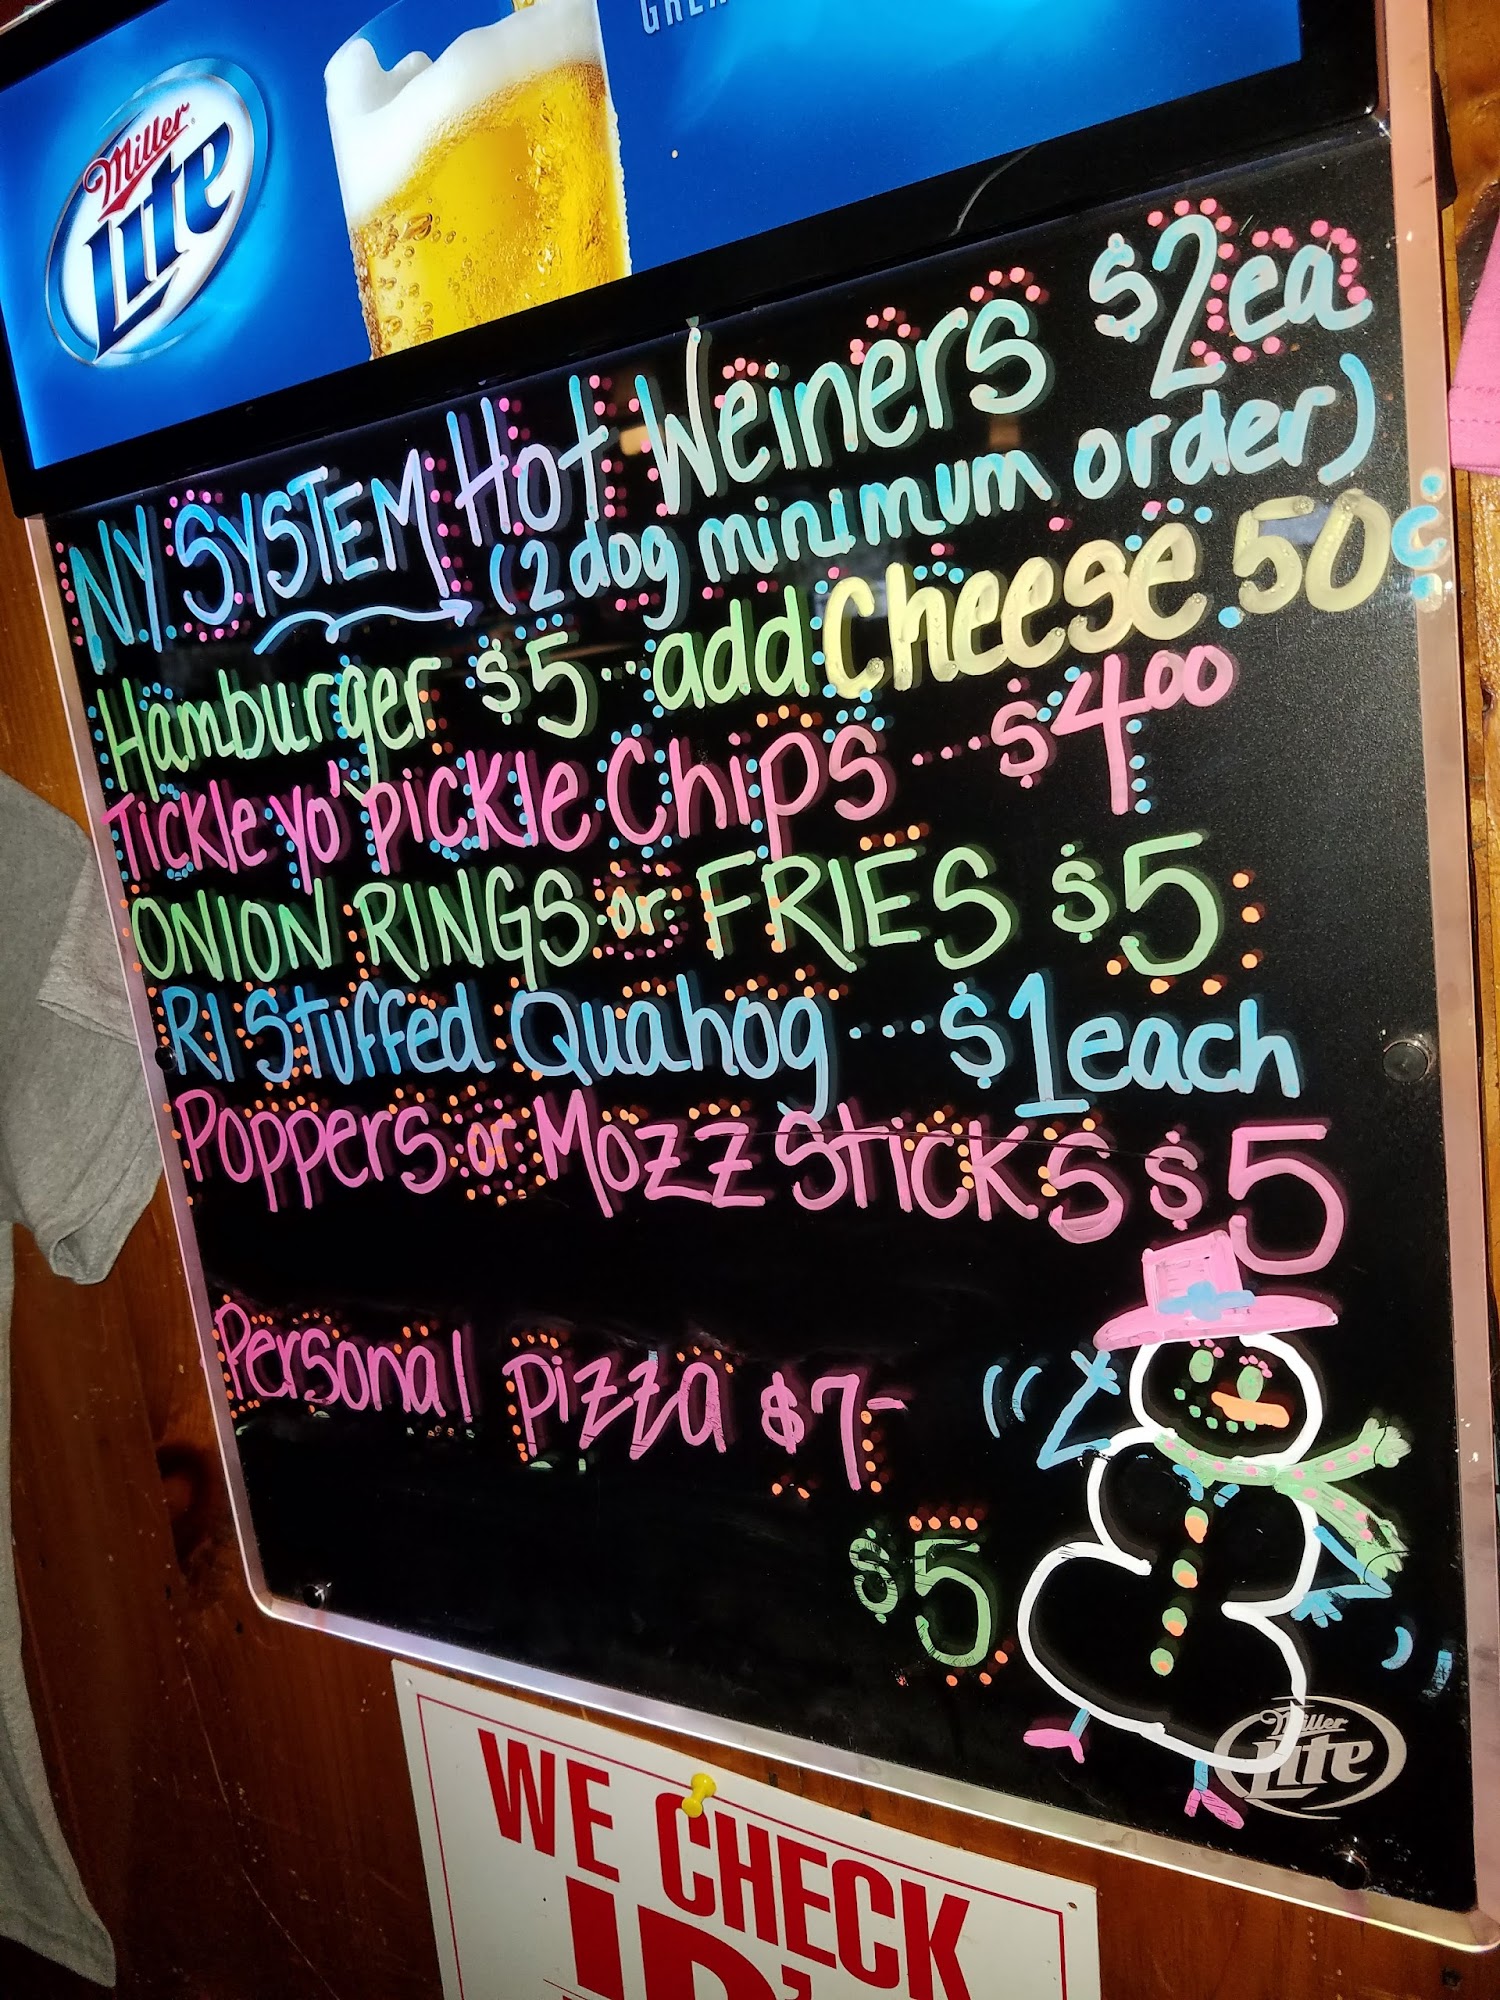 Miller
Lite
NY SYSTEM Hot Weiners $2ea
(2 dog minimum order)
Hamburger $5 -- add Cheese 50¢
Tickle yo' pickle Chips ... $4.00
ONION RINGS or FRIES $5
RI Stuffed Quahog ... $1 each
Poppers or Mozz Sticks $5
Personal Pizza $7-
$5
Miller
Lite
WE CHECK